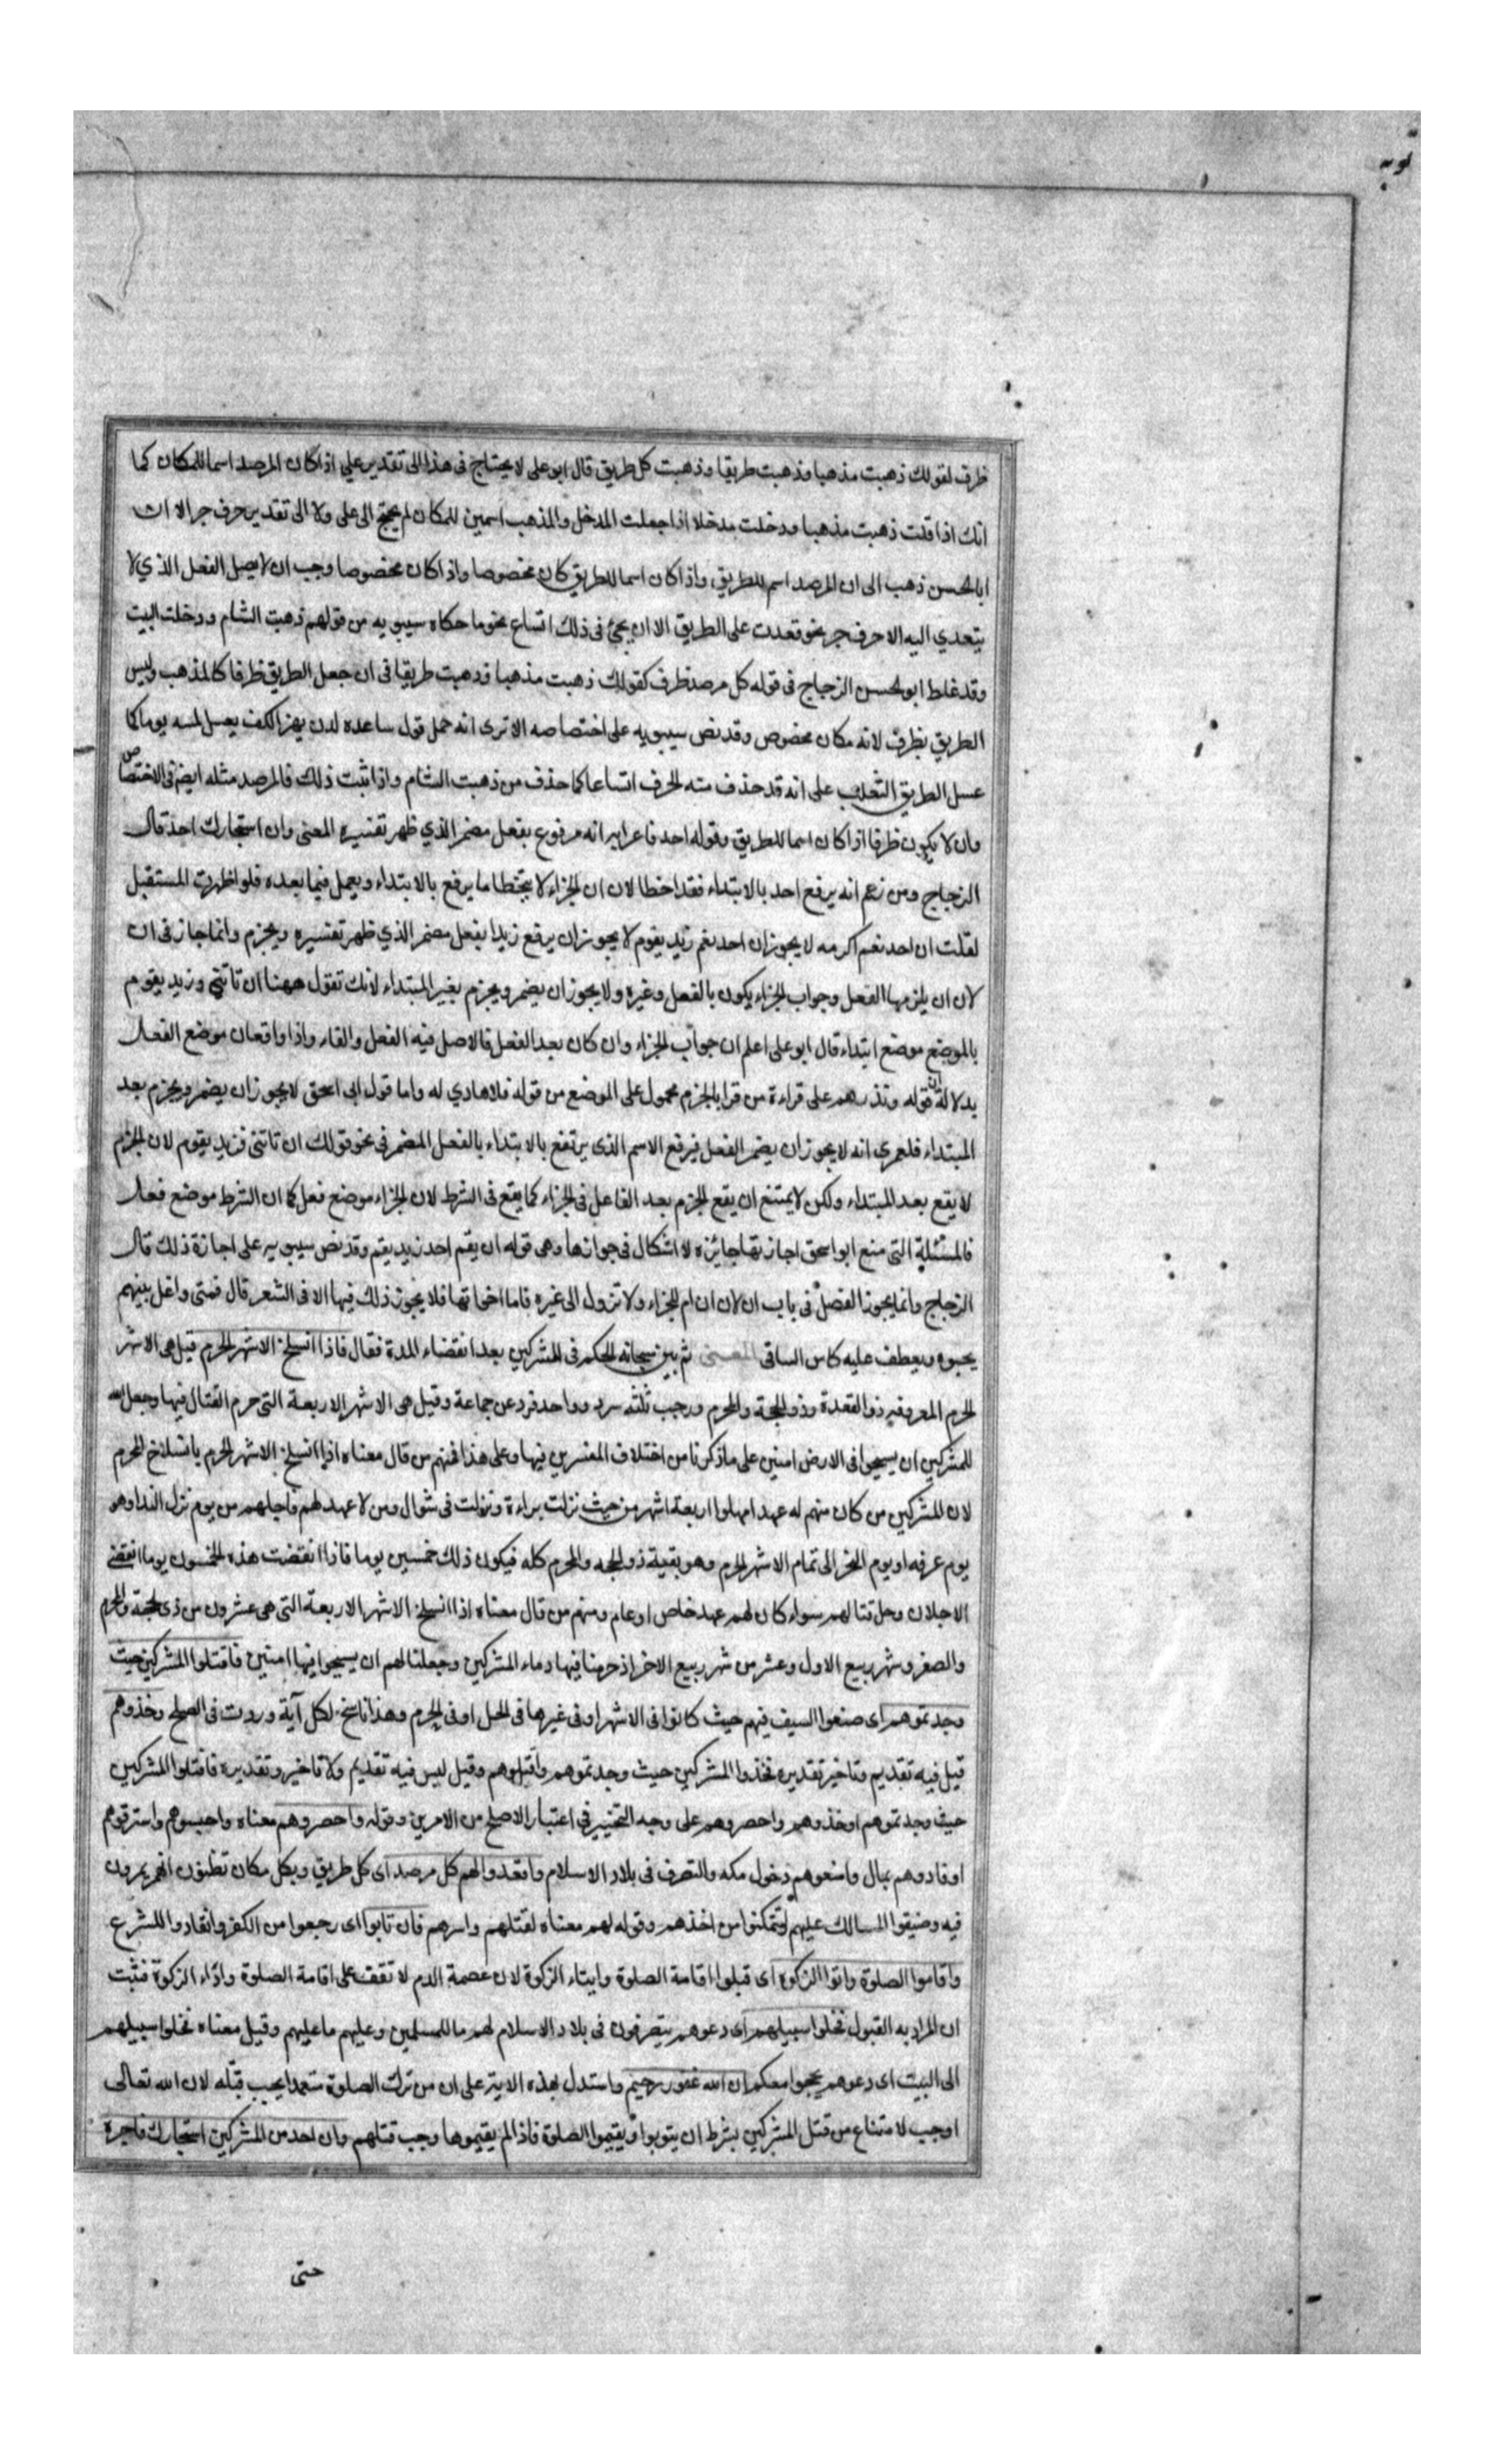 توبه
ظرف لقولك ذهبت مذهبا وذهبت طريقا وذهبت كل طريق قال ابو على لا يحتاج فى هذا الى تقدير على اذا كان المرصد اسما للمكان كما
انك اذا قلت ذهبت مذهبا ودخلت مدخلا اذا جعلت المدخل والمذهب اسمين للمكان لم يحتج الى على ولا الى تقدير حرف جر الا ان
ابا الحسن ذهب الى ان المرصد اسم للطريق واذا كان اسما للطريق كان مخصوصا واذا كان مخصوصا وجب ان لا يصل الفعل الذي لا
يتعدي اليه الا حرف جر نحو قعدت على الطريق الا ان يجئ فى ذلك اتساع نحو ما حكاه سيبويه من قولهم ذهبت الشام ودخلت البيت
وقد غلط ابو الحسن الزجاج فى قوله كل مرصد ظرف كقولك ذهبت مذهبا وذهبت طريقا فى ان جعل الطريق ظرفا كالمذهب وليس
الطريق بظرف لانه مكان مخصوص وقد نص سيبويه على اختصاصه الا ترى انه حمل قول ساعده لدن بهز الكف يعسل كما
عسل الطريق الثعلب على انه قد حذف منه الحرف اتساعا كما حذف من ذهبت الشام واذا ثبت ذلك فالمرصد مثله ايضا فى الاختصاص
وان لا يكون ظرفا اذا كان اسما للطريق وقوله احد فاعرابه انه مرفوع بفعل مضمر الذي ظهر تفسيره المعنى وان استجارك احد قال
الزجاج ومن زعم انه يرفع احد بالابتداء فقد اخطا لان ان الجزاء لا يتخطا ما يرفع بالابتداء ويعمل فيما بعده فلو اظهرت المستقبل
لقلت ان احد نغم اكرمه لا يجوز ان احد نغم زيد يقوم لا يجوز ان يرفع زيدا بفعل مضمر الذي ظهر تفسيره ويجزم وانما جاز فى ان
لان ان يلزمها الفعل وجواب الجزاء يكون بالفعل وغيره ولا يجوز ان يضمر ويجزم بغير المبتداء لانك تقول ههنا ان تاتنى وزيد يقوم
بالموضع موضع ابتداء قال ابو على اعلم ان جواب الجزاء وان كان بعد الفعل فالاصل فيه الفعل والفاء واذا واقعان موضع الفعل
بدلالة ان قوله ونذرهم على قراءة من قرا بالجزم محمول على الموضع من قوله فلا هادي له واما قول ابى اسحق لا يجوز ان يضمر ويجزم بعد
المبتداء فلعمري انه لا يجوز ان يضمر الفعل فيرفع الاسم الذى يرتفع بالابتداء بالفعل المضمر فى نحو قولك ان تاتنى فزيد يقوم لان الجزم
لا يقع بعد المبتداء ولكن لا يمتنع ان يقع الجزم بعد الفاعل فى الجزاء كما يقع فى الشرط لان الجزاء موضع فعل كما ان الشرط موضع فعل
فالمسئلة التى منع ابو اسحق اجازتها جائزه لا اشكال فى جوازها وهى قوله ان يقم احد زيد يقم وقد نص سيبويه على اجازة ذلك قال
الزجاج وانما يجوز الفصل فى باب ان لان ان ام الجزاء ولا تزول الى غيره فاما اخواتها فلا يجوز ذلك فيها الا فى الشعر قال فمتى واغل بينهم
يحيوه ويعطف عليه كاس الساقى المعنى ثم بين سبحانه الحكم فى المشركين بعد انقضاء المدة فقال فاذا انسلخ الاشهر الحرم قيل هى الاشهر
الحرم المعروفه ذو القعدة وذو الحجة والمحرم ورجب ثلثه سرد وواحد فرد عن جماعة وقيل هى الاشهر الاربعة التى حرم القتال فيها وجعل الله
للمشركين ان يسيحوا فى الارض امنين على ما ذكرنا من اختلاف المفسرين فيها وعلى هذا فمنهم من قال معناه اذا انسلخ الاشهر الحرم بانسلاخ المحرم
لان المشركين من كان منهم له عهد امهلوا اربعة اشهر من حيث نزلت براءة ونزلت فى شوال ومن لا عهد لهم فاجلهم من يوم نزل الندا وهو
يوم عرفه او يوم النحر الى تمام الاشهر الحرم وهو بقية ذو الحجه والمحرم كله فيكون ذلك خمسين يوما فاذا انقضت هذه الخمسون يوما انقضى
الاجلان وحل قتالهم سواء كان لهم عهد خاص او عام ومنهم من قال معناه اذا انسلخ الاشهر الاربعة التى هى عشرون من ذى الحجة والمحرم
والصفر وشهر ربيع الاول وعشر من شهر ربيع الاخر اذ حرمنا فيها دماء المشركين وجعلنا لهم ان يسيحوا فيها امنين فاقتلوا المشركين حيث
وجدتموهم اى ضعوا السيف فيهم حيث كانوا فى الاشهر او فى غيرها فى الحل او فى الحرم وهذا ناسخ لكل آية وردت فى الصلح وخذوهم
قيل فيه تقديم وتاخير تقديره فخذوا المشركين حيث وجدتموهم واقتلوهم وقيل ليس فيه تقديم ولا تاخير وتقديره فاقتلوا المشركين
حيث وجدتموهم او خذوهم واحصروهم على وجه التخيير فى اعتبار الاصلح من الامرين وقوله واحصروهم معناه واحبسوهم واسترقوهم
او فادوهم بمال وامنعوهم دخول مكه والتصرف فى بلاد الاسلام واقعدوا لهم كل مرصد اى كل طريق وبكل مكان تظنون انهم يمرون
فيه وضيقوا المسالك عليهم لتتمكنوا من اخذهم وقوله لهم معناه لقتلهم واسرهم فان تابوا اى رجعوا من الكفر وانقادوا للشرع
واقاموا الصلوة واتوا الزكوة اى قبلوا اقامة الصلوة وايتاء الزكوة لان عصمة الدم لا تقف على اقامة الصلوة واداء الزكوة فثبت
ان المراد به القبول فخلوا سبيلهم اى دعوهم يتصرفون فى بلاد الاسلام لهم ما للمسلمين وعليهم ما عليهم وقيل معناه فخلوا سبيلهم
الى البيت اى دعوهم يحجوا معكم ان الله غفور رحيم واستدل بهذه الاية على ان من ترك الصلوة متعمدا يجب قتله لان الله تعالى
اوجب الامتناع من قتل المشركين بشرط ان يتوبوا ويقيموا الصلوة فاذا لم يقيموها وجب قتلهم وان احد من المشركين استجارك فاجره
حتى